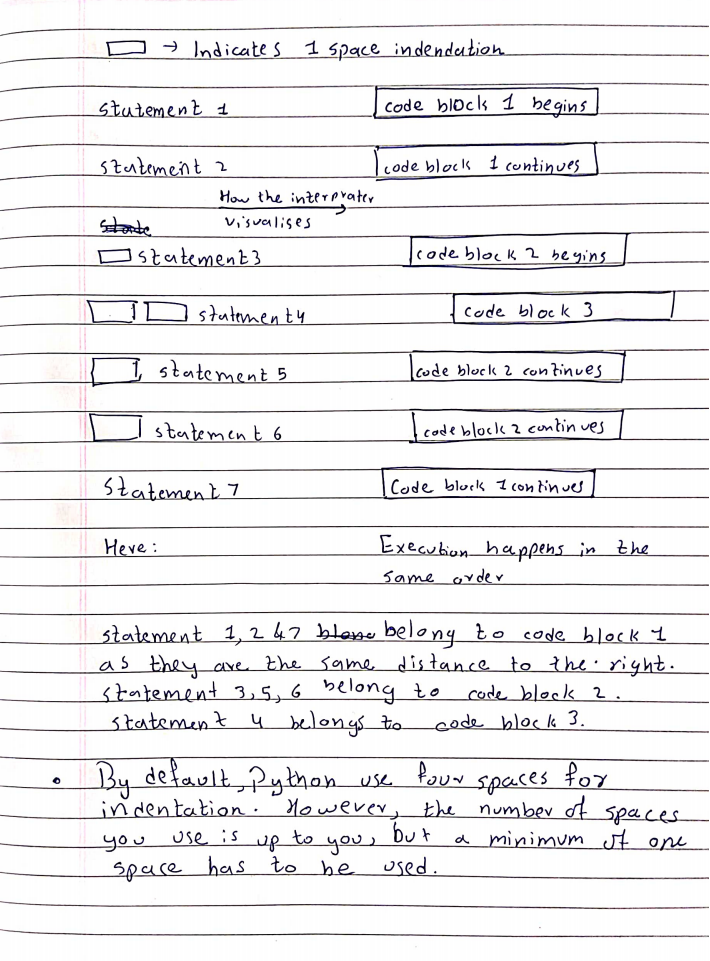 → Indicates 1 space indendation
statement 1 code block 1 begins
statement 2 code block 1 continues
How the interprater
visualises
statement 3 code block 2 begins
statement 4 code block 3
statement 5 code block 2 continues
statement 6 code block 2 continues
Statement 7 Code block 1 continues
Here: Execution happens in the
same order
statement 1, 2 & 7 belong to code block 1
as they are the same distance to the right.
statement 3, 5, 6 belong to code block 2.
statement 4 belongs to code block 3.
• By default, Python use four spaces for
indentation. However, the number of spaces
you use is up to you, but a minimum of one
space has to be used.